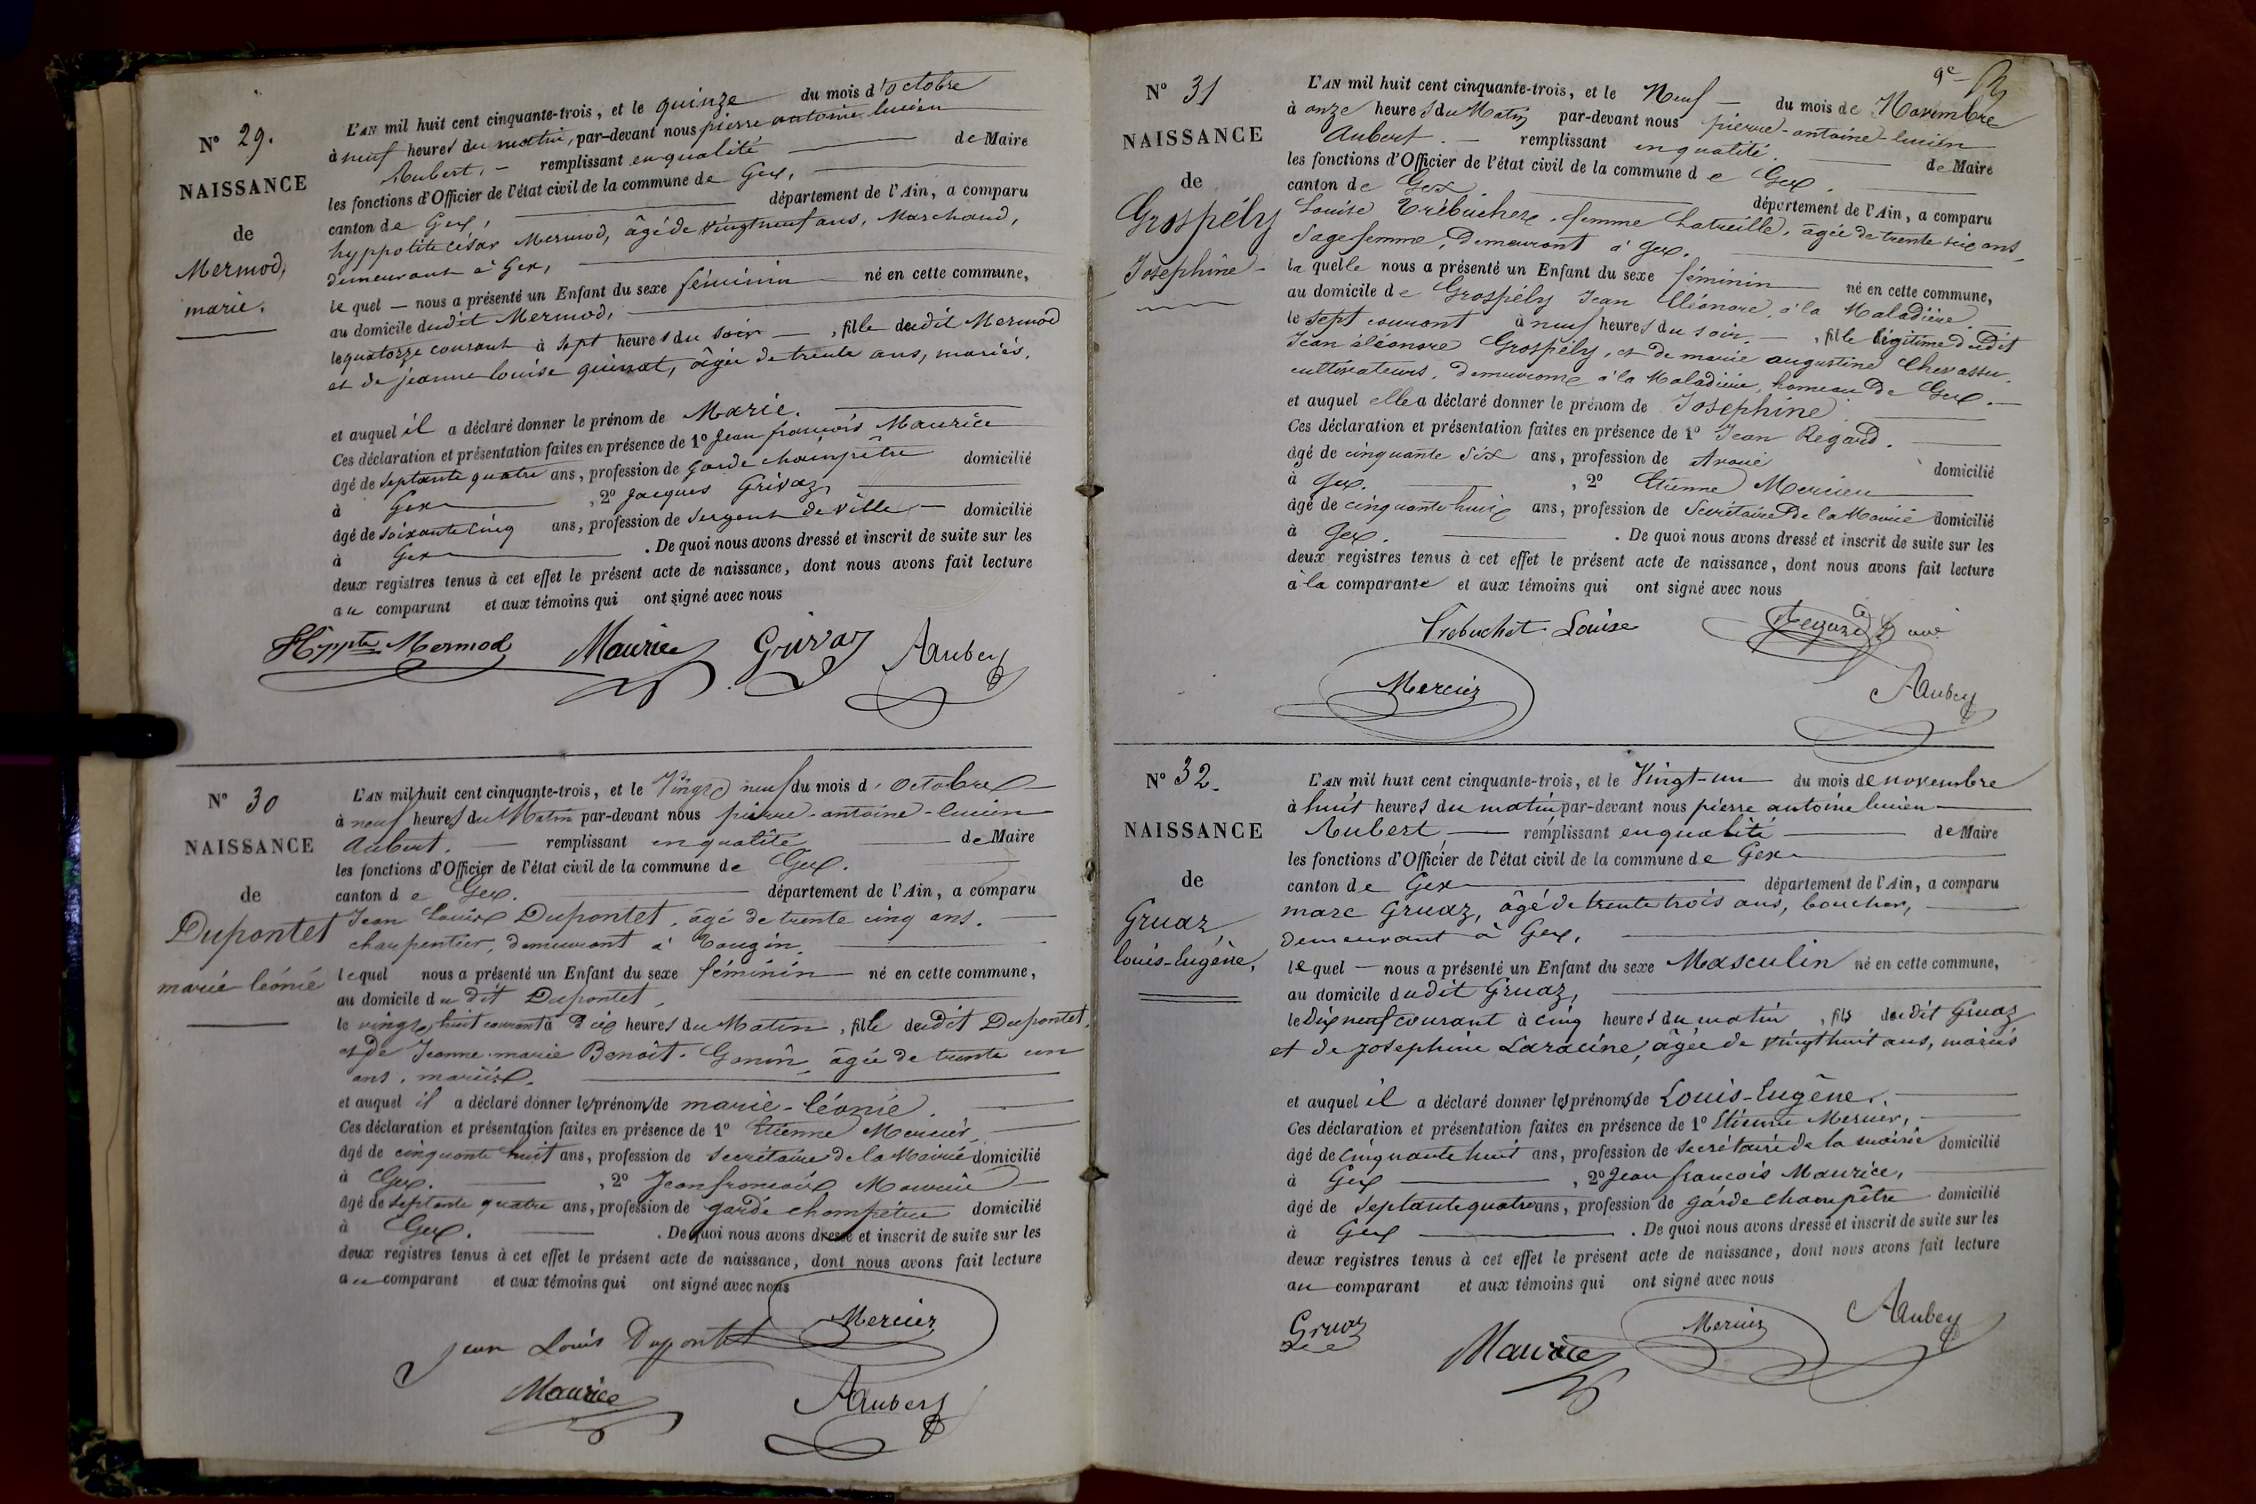 N° 29.
NAISSANCE
de
Mermod,
marie.
L'AN mil huit cent cinquante-trois, et le quinze du mois d'octobre
à neuf heures du matin, par-devant nous pierre antoine lucien
Aubert, remplissant en qualité de Maire
les fonctions d'Officier de l'état civil de la commune de Gex,
canton de Gex, département de l'Ain, a comparu
hyppolite César Mermod, âgé de vingt neuf ans, Marchand,
demeurant à Gex,
lequel nous a présenté un Enfant du sexe féminin né en cette commune,
au domicile dudit Mermod,
le quatorze courant à sept heures du soir, fille dudit Mermod
et de jeanne louise quinat, âgée de trente ans, mariés.
et auquel il a déclaré donner le prénom de Marie.
Ces déclaration et présentation faites en présence de 1° Jean françois Maurice
âgé de septante quatre ans, profession de garde champêtre domicilié
à Gex, 2° Jacques Grivaz
âgé de soixante cinq ans, profession de Sergent de Ville domicilié
à Gex. De quoi nous avons dressé et inscrit de suite sur les
deux registres tenus à cet effet le présent acte de naissance, dont nous avons fait lecture
au comparant et aux témoins qui ont signé avec nous
Hippte Mermod Maurice Grivaz Aubert
N° 30
NAISSANCE
de
Dupontet
marie léonie
L'AN mil huit cent cinquante-trois, et le Vingt neuf du mois d'octobre
à neuf heures du Matin par-devant nous pierre-antoine-lucien
Aubert. remplissant en qualité de Maire
les fonctions d'Officier de l'état civil de la commune de Gex.
canton de Gex. département de l'Ain, a comparu
Jean Louis Dupontet, âgé de trente cinq ans.
charpentier, demeurant à Tougin.
lequel nous a présenté un Enfant du sexe féminin né en cette commune,
au domicile du dit Dupontet,
le vingt huit courant à dix heures du Matin, fille dudit Dupontet,
et de Jeanne marie Benoit-Gonin, âgée de trente un
ans, mariés.
et auquel il a déclaré donner les prénoms de marie-léonie.
Ces déclaration et présentation faites en présence de 1° Etienne Mercier,
âgé de cinquante huit ans, profession de Secrétaire de la Mairie domicilié
à Gex. , 2° Jean françois Maurice
âgé de septante quatre ans, profession de garde champetre domicilié
à Gex. . De quoi nous avons dressé et inscrit de suite sur les
deux registres tenus à cet effet le présent acte de naissance, dont nous avons fait lecture
au comparant et aux témoins qui ont signé avec nous
Mercier
Jean Louis Dupontet
Maurice Aubert
9e
N° 31
NAISSANCE
de
Grospély
Josephine
L'AN mil huit cent cinquante-trois, et le Neuf du mois de Novembre
à onze heures du Matin par-devant nous pierre-antoine-lucien
Aubert. remplissant en qualité de Maire
les fonctions d'Officier de l'état civil de la commune de Gex.
canton de Gex département de l'Ain, a comparu
Louise Trébuchet, femme Latreille, âgée de trente six ans,
Sage femme, demeurant à Gex.
la quelle nous a présenté un Enfant du sexe féminin né en cette commune,
au domicile de Grospély Jean Eléonore, à la Maladière
le sept courant à neuf heures du soir. , fille légitime dudit
Jean éléonore Grospély, et de marie augustine Chevassu.
cultivateurs, demeurant à la Maladière, hameau de Gex.
et auquel elle a déclaré donner le prénom de Josephine
Ces déclaration et présentation faites en présence de 1° Jean Regard.
âgé de cinquante six ans, profession de Avoué domicilié
à Gex. , 2° Etienne Mercier
âgé de cinquante huit ans, profession de Secrétaire de la Mairie domicilié
à Gex. . De quoi nous avons dressé et inscrit de suite sur les
deux registres tenus à cet effet le présent acte de naissance, dont nous avons fait lecture
à la comparante et aux témoins qui ont signé avec nous
Trebuchet Louise Regard avé
Mercier Aubert
N° 32.
NAISSANCE
de
Gruaz
louis-Eugène,
L'AN mil huit cent cinquante-trois, et le Vingt-un du mois de novembre
à huit heures du matin par-devant nous pierre antoine lucien
Aubert remplissant en qualité de Maire
les fonctions d'Officier de l'état civil de la commune de Gex
canton de Gex département de l'Ain, a comparu
marc Gruaz, âgé de trente trois ans, boucher,
demeurant à Gex,
lequel nous a présenté un Enfant du sexe Masculin né en cette commune,
au domicile dudit Gruaz,
le Dix neuf courant à cinq heures du matin, fils dudit Gruaz
et de Josephine Laracine, âgée de vingt huit ans, mariés
et auquel il a déclaré donner les prénoms de Louis-Eugène.
Ces déclaration et présentation faites en présence de 1° Etienne Mercier,
âgé de cinquante huit ans, profession de secrétaire de la mairie domicilié
à Gex , 2° Jean françois Maurice,
âgé de septante quatre ans, profession de garde champêtre domicilié
à Gex . De quoi nous avons dressé et inscrit de suite sur les
deux registres tenus à cet effet le présent acte de naissance, dont nous avons fait lecture
au comparant et aux témoins qui ont signé avec nous
Gruaz Maurice Mercier Aubert